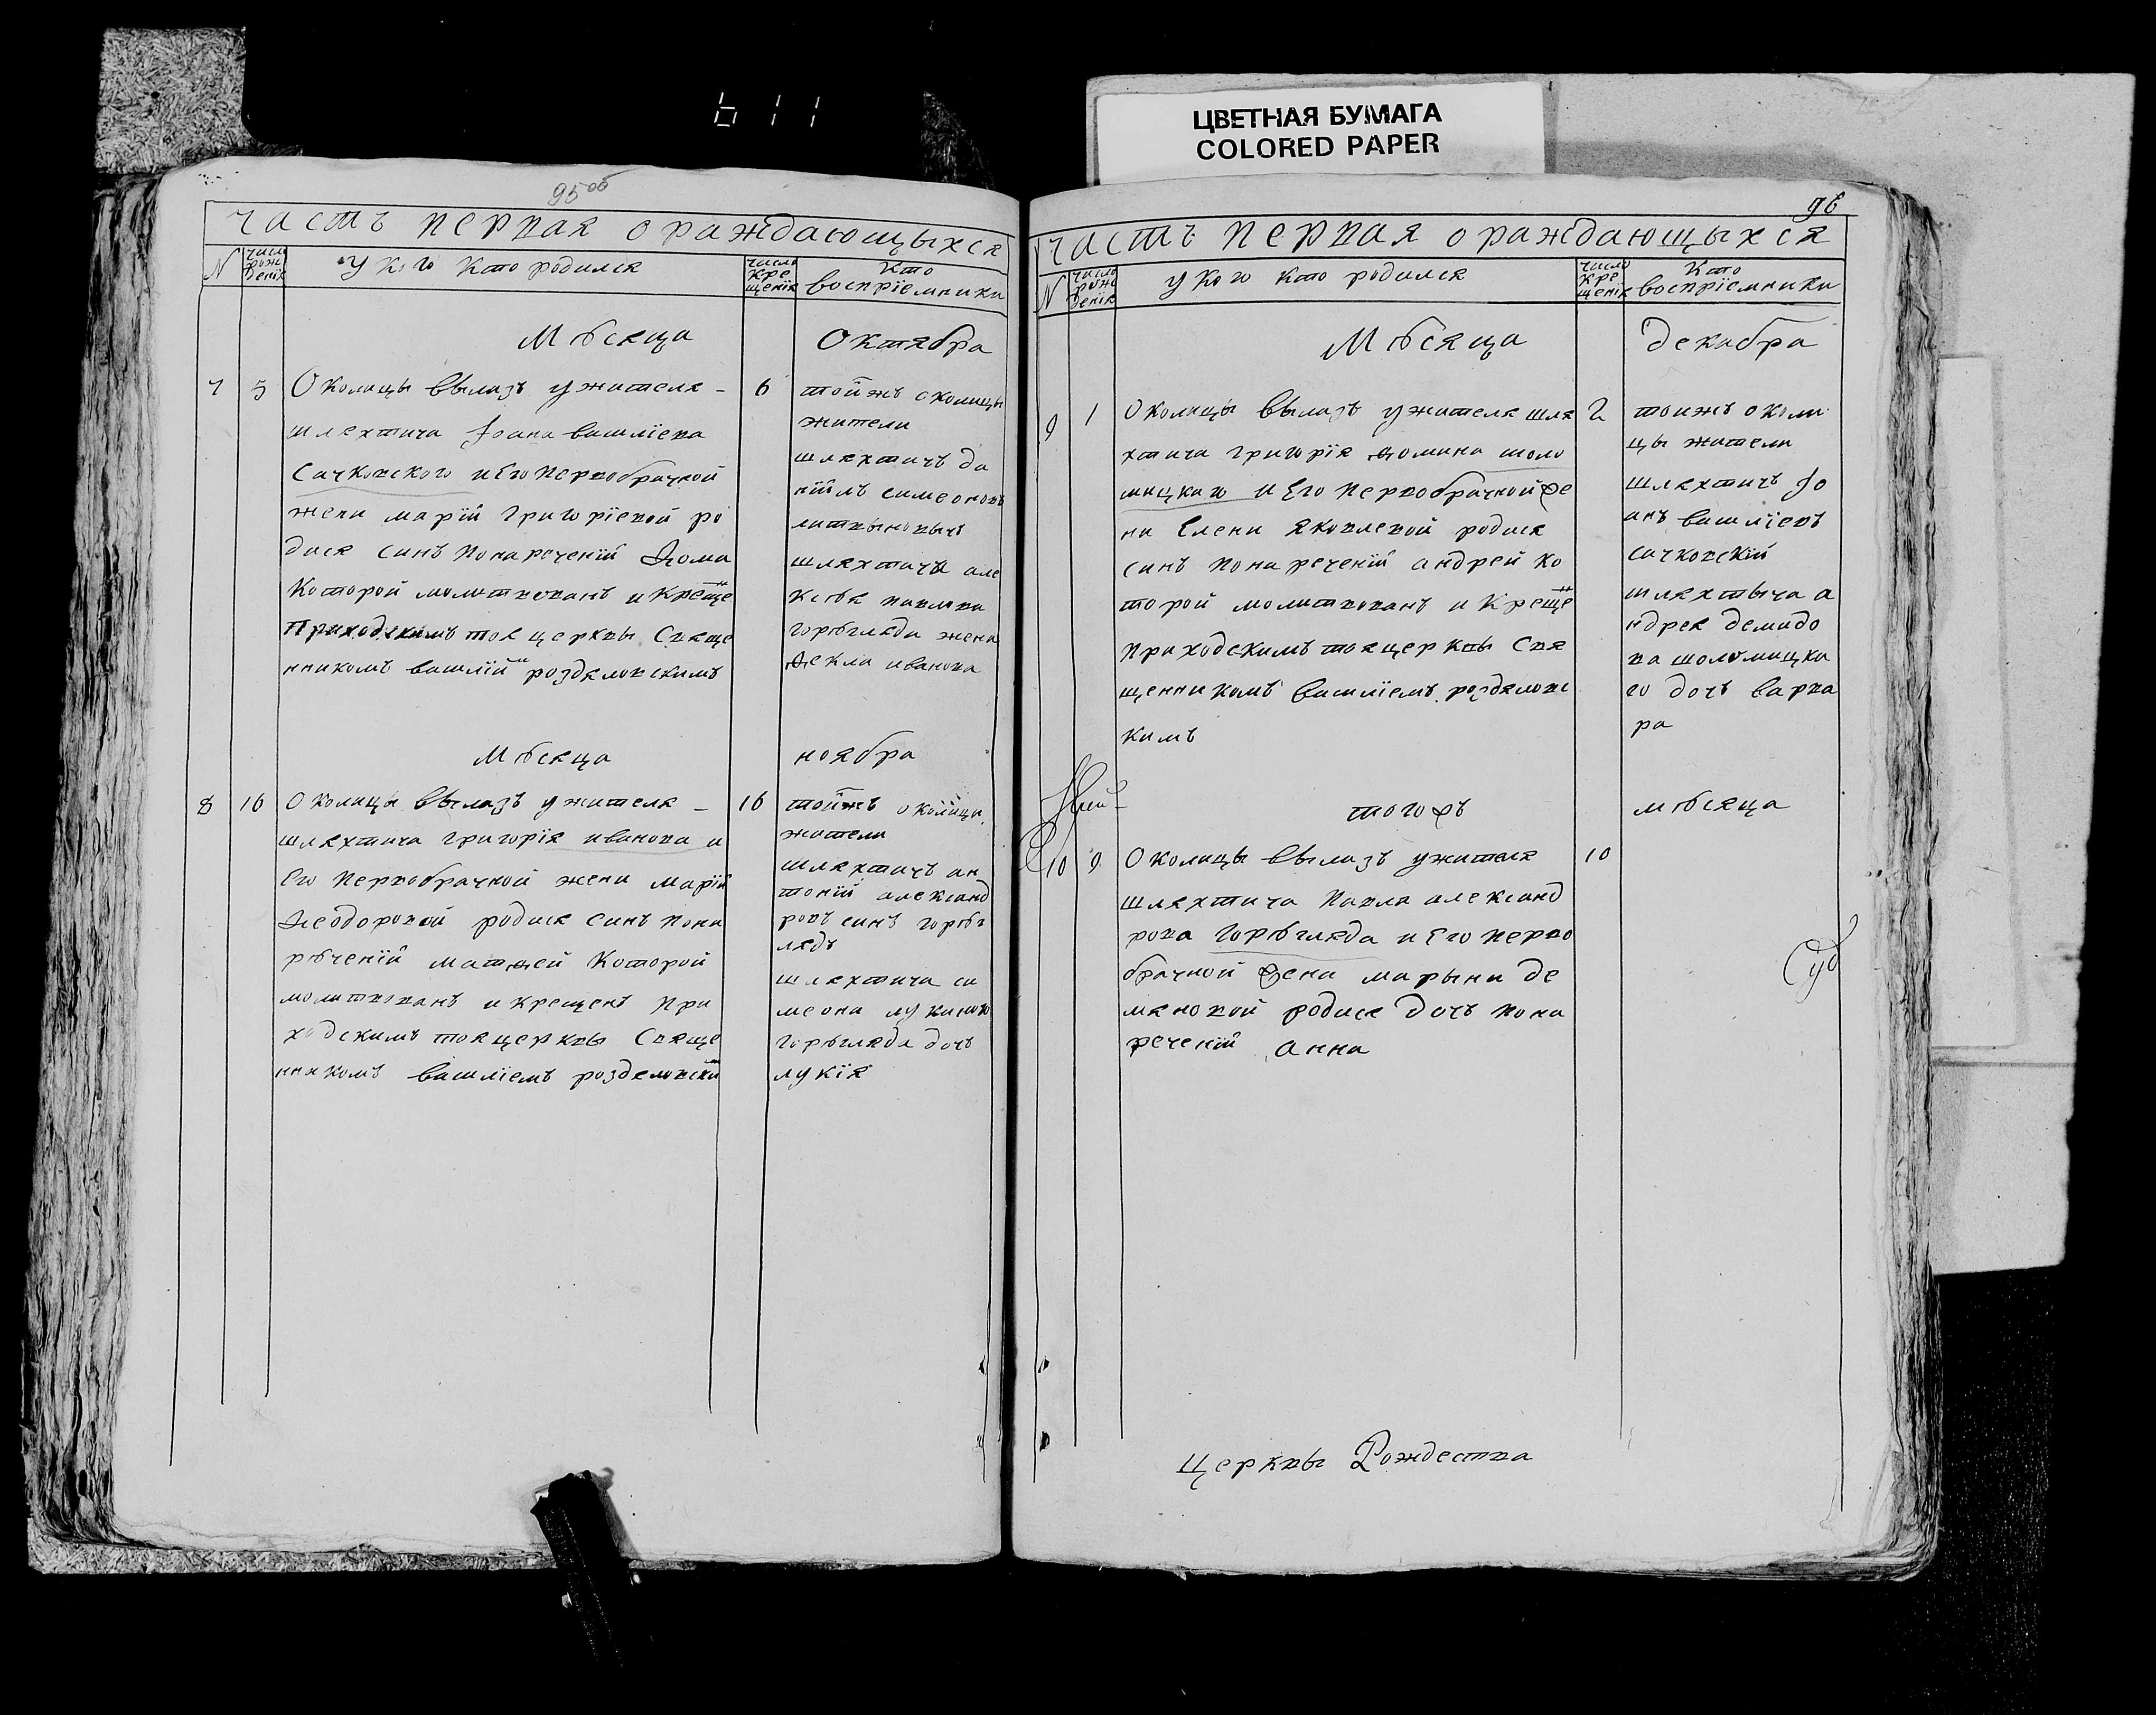 611
ЦВЕТНАЯ БУМАГА
COLORED PAPER
95об
часть первая о раждающыхся
N
число рождения
у кого кто родился
число крещенія
кто воспріемники
Мѣсяца Октября
7 5
Околицы Вылазъ у жителя
шляхтича Іоана василіева
Сачковского и Его первобрачной
жени маріи Григоріевой ро
дися синъ понареченіи Ѳома
Которой молитвованъ и Креще
Приходскимъ тоя церквы Свяще
нникомъ василіи роздяловскимъ
6
тоижъ околицы
жители
шляхтичъ да
ніилъ симеоновъ
литвыновычъ
шляхтича але
ксѣя павлова
горѣгляда жена
Ѳекла иванова
Мѣсяца ноября
8 16
Околицы Вылазъ у жителя
шляхтича григорія иванова и
Его первобрачной жени маріи
Ѳеодоровой родися синъ пона
рѣченіи матѳей Которой
молитвованъ и крещенъ при
ходскимъ тоя церквы Свяще
нникомъ василіемъ роздяловски
16
тоижъ околици
жители
шляхтичъ ан
тоніи александ
ровъ синъ горѣг
лядъ
шляхтича си
меона лукиного
горѣгляда дочь
лукія
96
часть первая о раждающыхся
N
число рожденія
у кого кто родился
число крещенія
кто воспріемники
Мѣсяца Декабра
9 1
Околицы Вылазъ у жителя шля
хтича григорія Ѳомина шоло
мицкаго и Его первобрачной же
ни Елени яковлевой родися
синъ понареченіи андрей ко
торой молитвованъ и Креще
приходскимъ тоя церквы Свя
щенникомъ василіемъ роздяловс
кимъ
2
тоижъ околи
цы жители
шляхтичъ Іо
анъ василіевъ
сачковскіи
шляхтыча а
ндрея демидо
ва шоломицка
го дочь варва
ра
тогожъ мѣсяца
10 9
Околицы Вылазъ у жителя
шляхтича павла александ
рова горѣгляда и Его перво
брачной жени марыни де
мяновой родися дочь пона
реченіи анна
10
Церквы Рождества